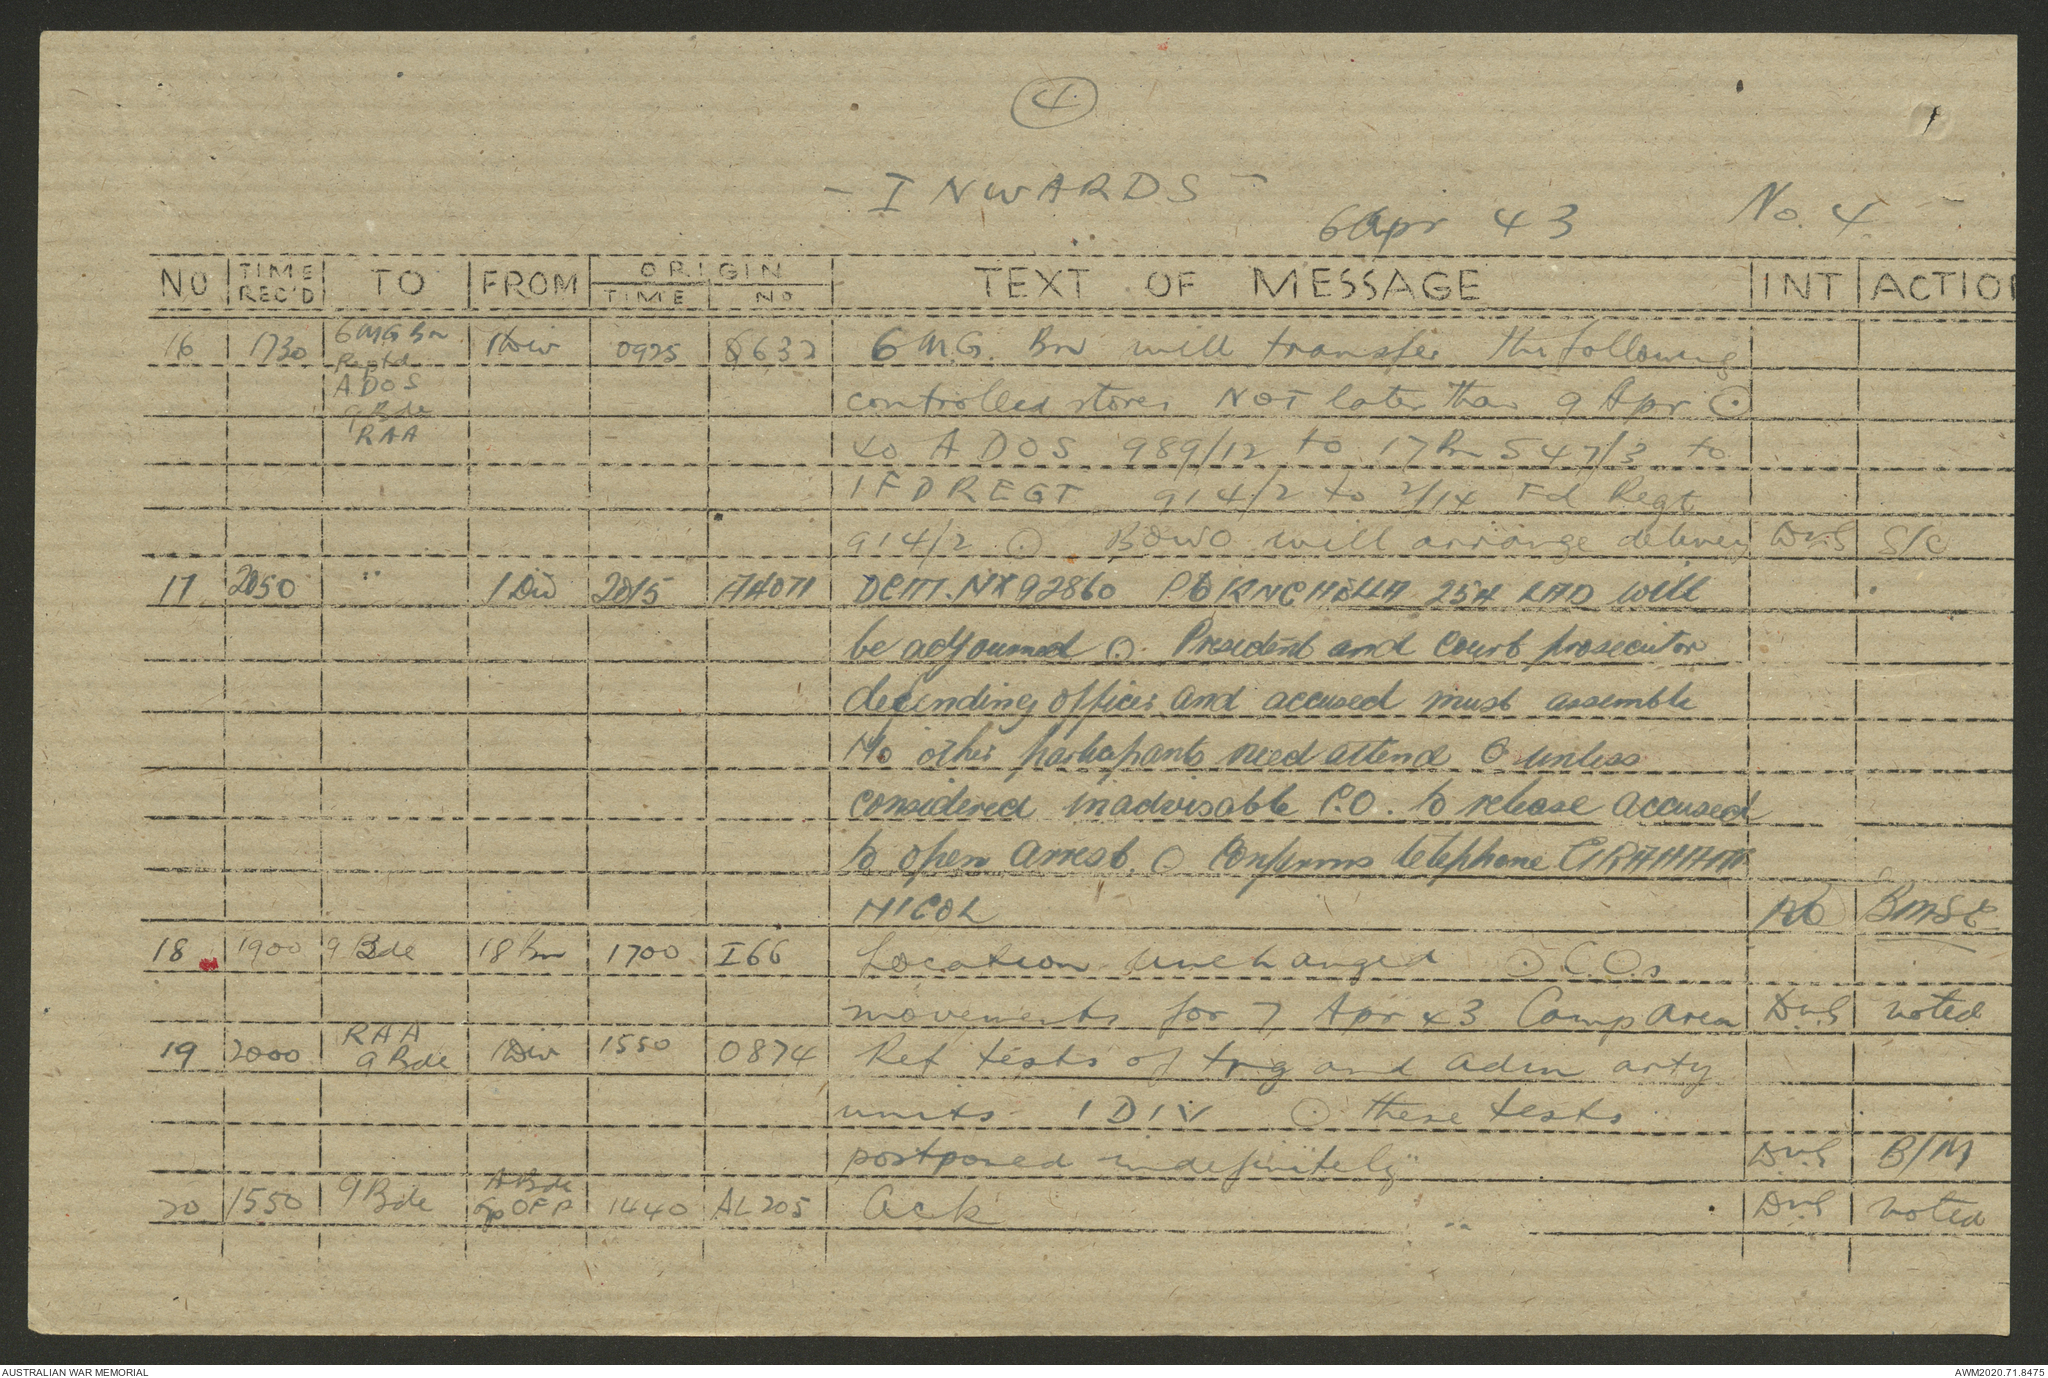 4
- INWARDS -
6 Apr 43 No. 4
NO TIME REC'D TO FROM ORIGIN TIME NO TEXT OF MESSAGE INT ACTION
16 1730 6 MG Bn 1 Div 0925 632 6 M.G. Bn will transfer the following
Reptd
ADOS
9 Bde controlled stores NOT later than 9 Apr ⊙
RAA
40 ADOS 989/12 to 17 Bn 547/3 to
1 FD REGT 914/2 to 2/14 Fd Regt
914/2 ⊙ BOWO will arrange delivery DWS S/C
17 2050 " 1 Div 2015 DCM. NX92860 LAD will
be adjourned ⊙ President and Court prosecutor
defending officer and accused must assemble
No other participants need attend ⊙ unless
considered inadvisable C.O. to release accused
to open arrest. ⊙ Confirms telephone GRAHAM
NICOL
18 1900 9 Bde 18 Bn 1700 I66 Location unchanged ⊙ C.Os
movements for 7 Apr 43 Camp Area DWS noted
19 2000 RAA 9 Bde 1 Div 1550 0874 Ref tests of trg and adm arty
units 1 DIV ⊙ these tests
postponed indefinitely DWS B/M
20 1550 9 Bde 1440 AL205 Ack DWS noted
AUSTRALIAN WAR MEMORIAL AWM2020.71.8475